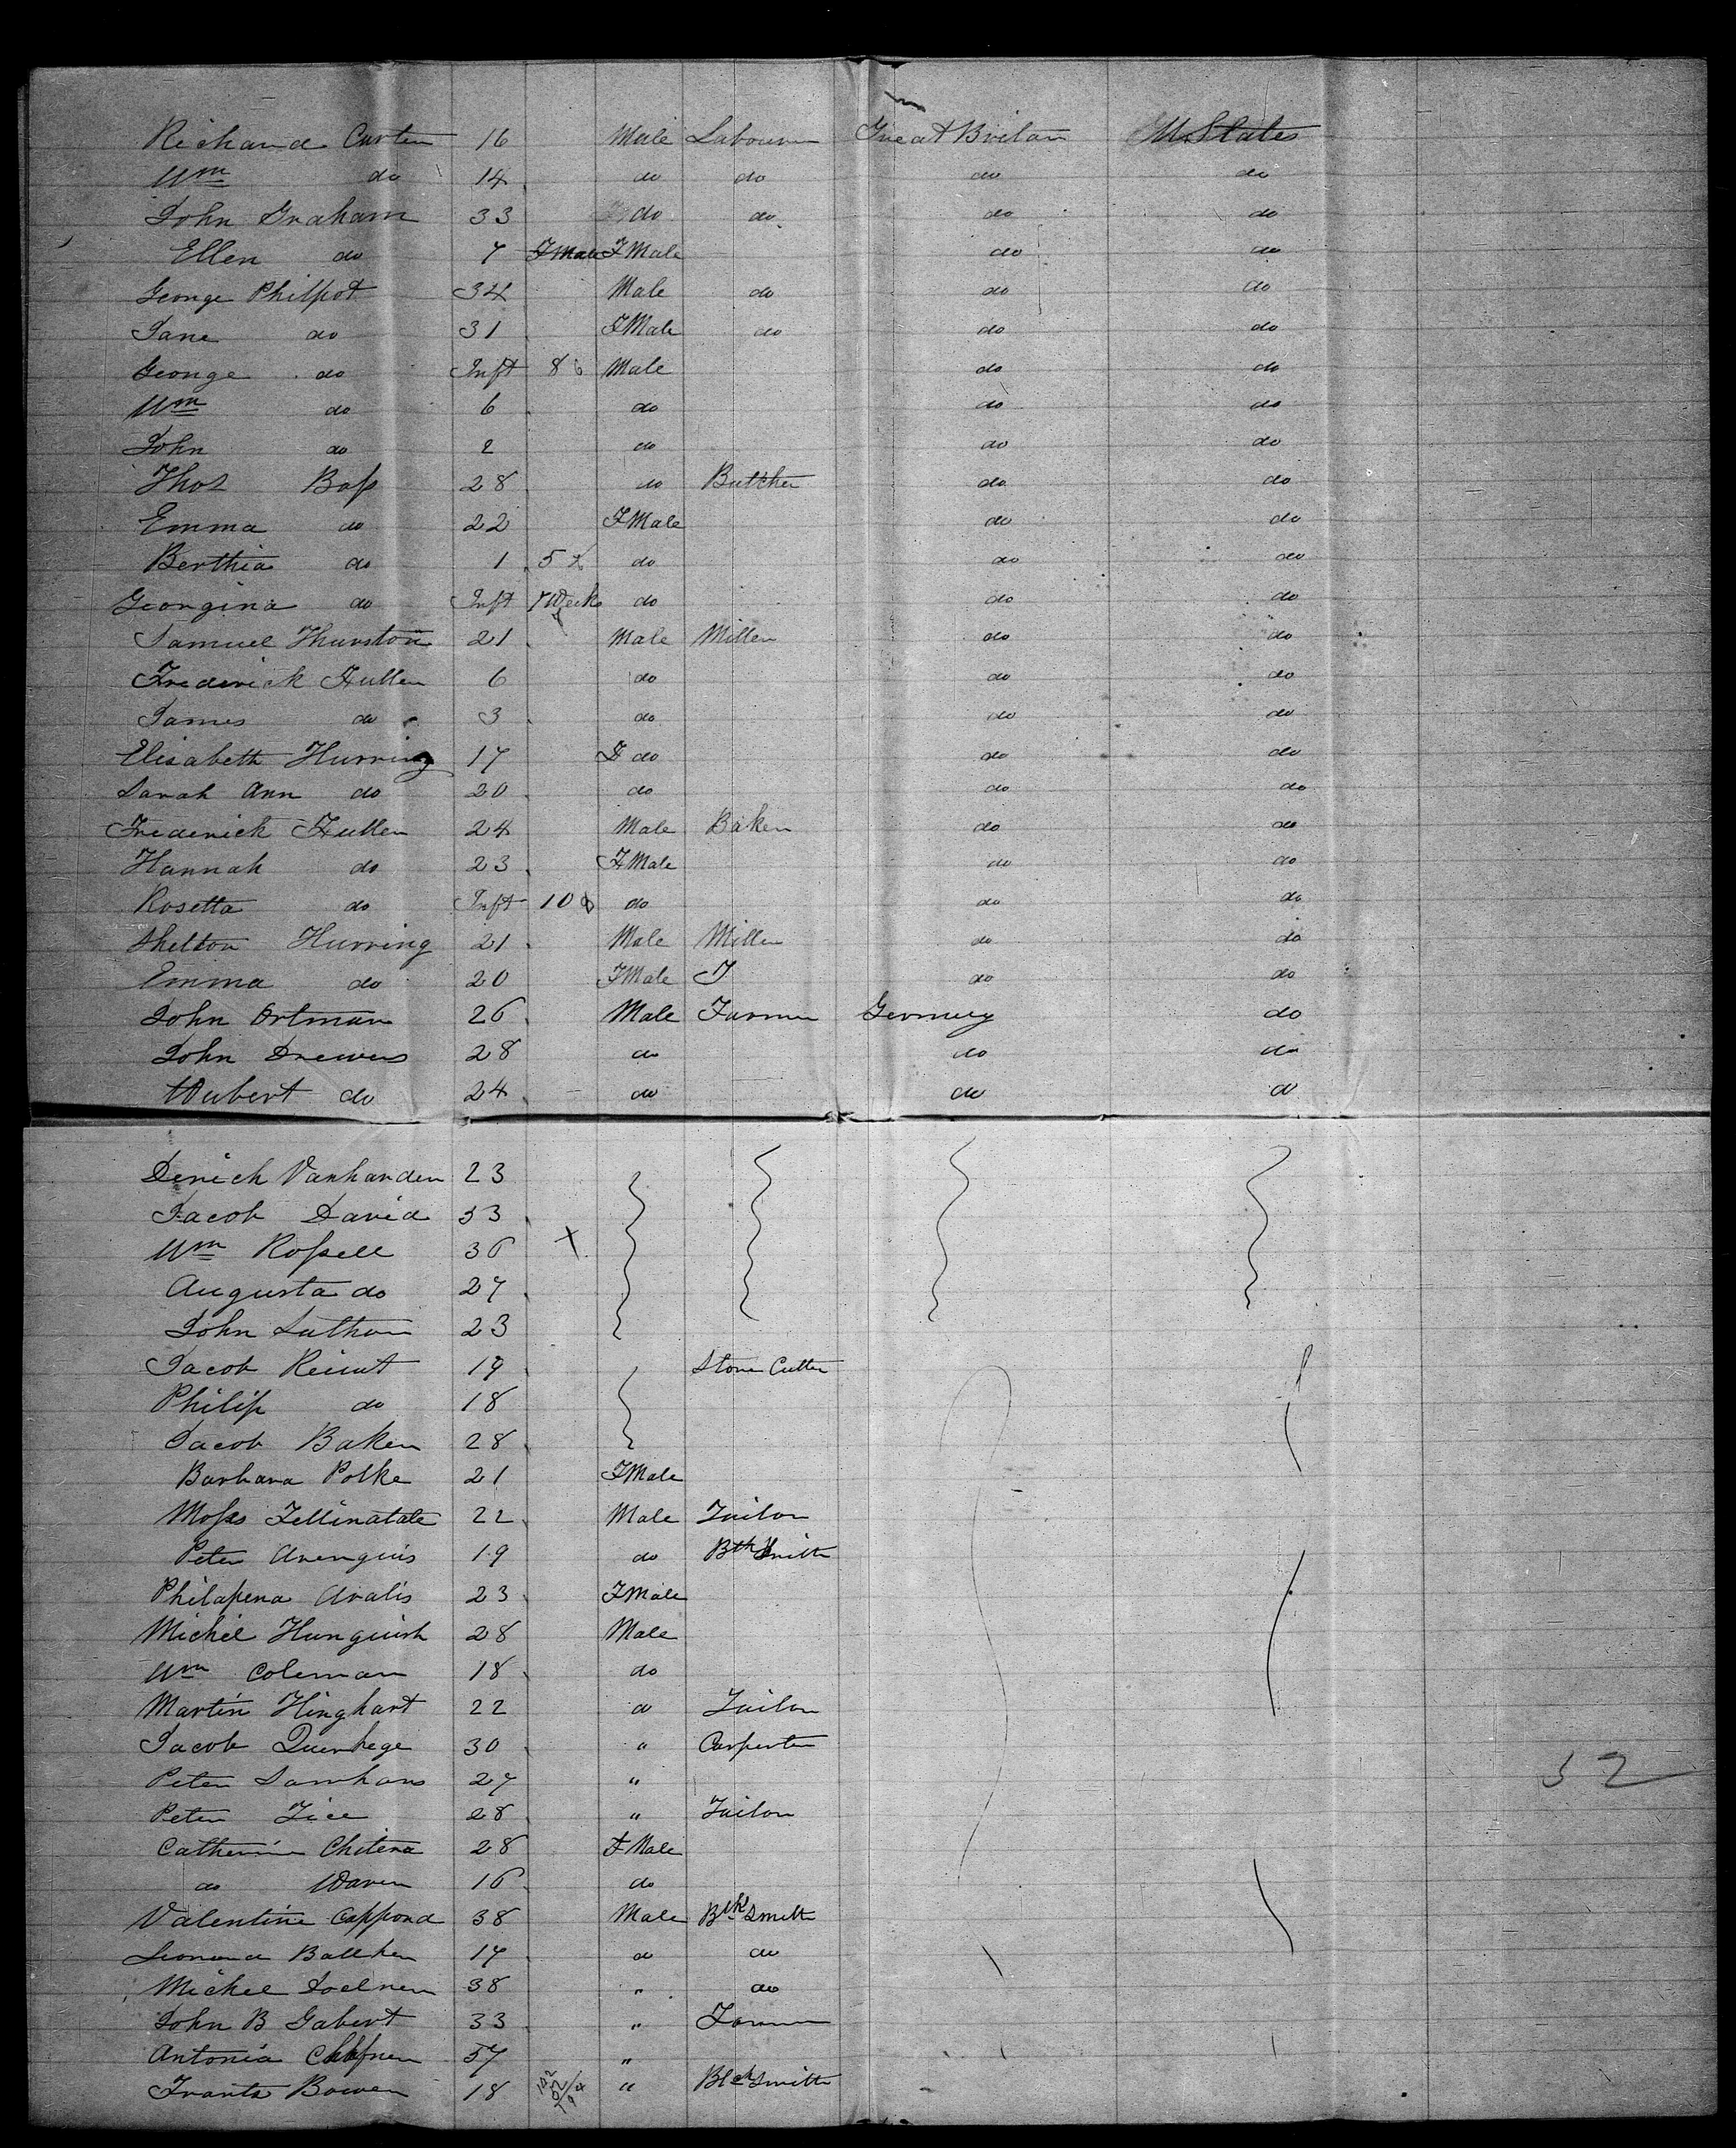 Richard Carter 16 Male Labourer Great Britain U States
Wm do 14 do do do do
John Graham 33 do do do do
Ellen do 7 FMale FMale do do
George Philpot 34 Male do do do
Jane do 31 FMale do do do
George do Inft 8 Male do do
Wm do 6 do do do
John do 2 do do do
Thos Bass 28 do Butcher do do
Emma do 22 FMale do do
Berthia do 1 5 do do do
Georgina do Inft 7 Weeks do do do
Samuel Thurston 21 Male Miller do do
Frederick Fuller 6 do do do
James do 3 do do do
Elisabeth Hurring 17 F do do do
Sarah Ann do 20 do do do
Frederick Fuller 24 Male Baker do do
Hannah do 23 FMale do do
Rosetta do Inft 10 do do do
Shelton Hurring 21 Male Miller do do
Emma do 20 FMale do do
John Ortman 26 Male Farmer Germny do
John Drewers 28 do do do
Wubert do 24 do do do
Derich Vanharden 23
Jacob David 33
Wm Rossell 36 X
Augusta do 27
John Luthan 23
Jacob 19 Stone Cutter
Philip do 18
Jacob Baker 28
Barbara Polke 21 FMale
Moses 22 Male Tailor
Peter 19 do Smith
Philapena Avalis 23 FMale
Michel 28 Male
Wm Coleman 18 do
Martin Hinghart 22 do Tailor
Jacob Querhege 30 " Carpenter
Peter Samhans 27 "
Peter 28 " Tailor
Catherine Chitera 28 FMale
do 16 do
Valentine Coppord 38 Male Blk Smith
Leonard 17 do do
Michel 38 " do
John B Gabert 33 " Farmer
Antonia 37 "
Frants Bower 18 " Blcksmith
102
52